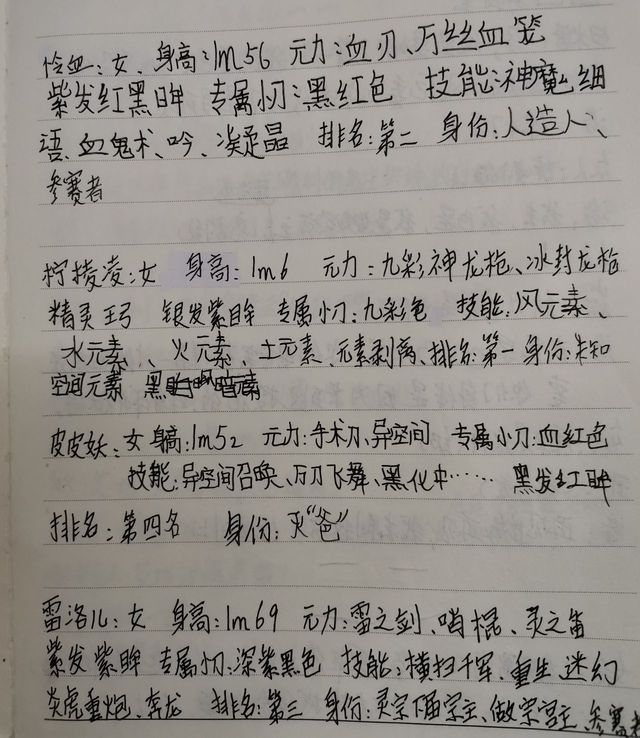 怜血:女、身高:1m56 元力:血刃、万丝血笼
紫发红黑眸 专属小刀:黑红色 技能:神魔细
语、血鬼术、吟、凝晶 排名:第二 身份:人造人、
参赛者
柠捜凌:女 身高:1m6 元力:九彩神龙枪、冰封龙枪
精灵弓 银发紫眸 专属小刀:九彩色 技能:风元素、
水元素、火元素、土元素、元素剥离、排名:第一 身份:未知
空间元素 黑暗元素
皮皮妖:女 身高:1m52 元力:手术刀、异空间 专属小刀:血红色
技能:异空间召唤、万刀飞舞、黑化中…… 黑发红眸
排名:第四名 身份:灭“爸”
雷洛儿:女 身高:1m69 元力:雷之剑、哨棍、灵之笛
紫发紫眸 专属小刀:深紫黑色 技能:横扫千军、重生 迷幻
炎虎重炮、奔龙 排名:第三 身份:灵宗下面宗主、做宗宫主、参赛者